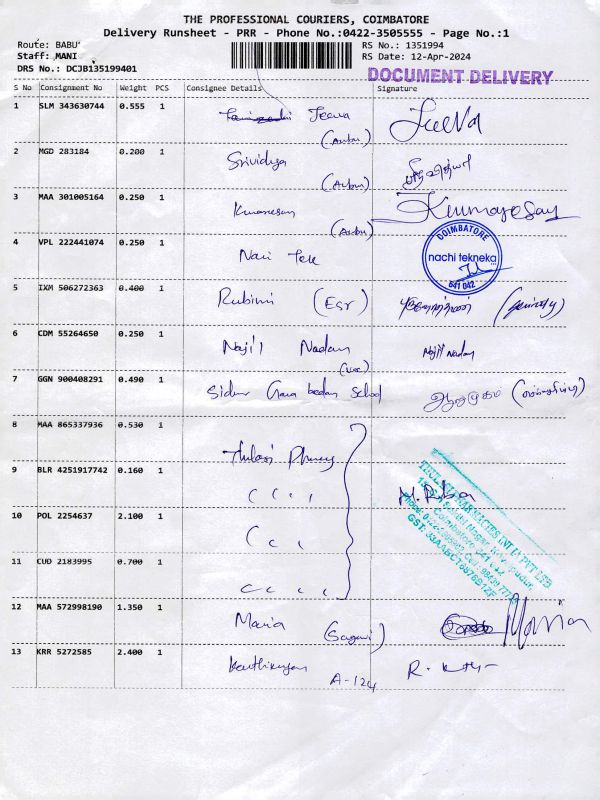 THE PROFESSIONAL COURIERS, COIMBATORE
Delivery Runsheet - PRR - Phone No.:0422-3505555 - Page No.:1
Route: BABU
Staff: MANI
DRS No.: DCJB135199401
RS No.: 1351994
RS Date: 12-Apr-2024
DOCUMENT DELIVERY
S No Consignment No Weight PCS Consignee Details Signature
1 SLM 343630744 0.555 1 Jeeva Jeeva
2 MGD 283184 0.200 1 Srividya ஸ்ரீவித்யா
3 MAA 301005164 0.250 1 Kumaresan Kumaresan
4 VPL 222441074 0.250 1 Naci Tek
COIMBATORE
nachi tekneka
641 042
5 IXM 506272363 0.400 1 Rubini
6 CDM 55264650 0.250 1 Najil Nadan Najil Nadan
7 GGN 900408291 0.490 1 School ஆறுமுகம்
8 MAA 865337936 0.530 1 Thulasi
9 BLR 4251917742 0.160 1 " M. Ruba
10 POL 2254637 2.100 1 "
11 CUD 2183995 0.700 1 "
THULASI PHARMACIES INDIA PVT LTD
12 MAA 572998190 1.350 1 Maria Maria
13 KRR 5272585 2.400 1 Karthikeyan A-124